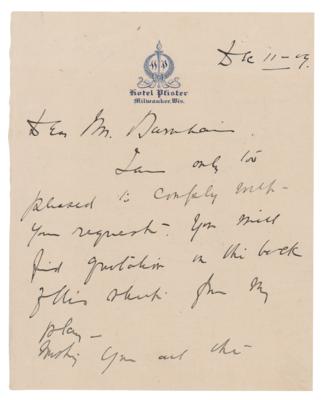 Hotel Pfister
Milwaukee, Wis.
Dec 11-09.
Dear Mr. Barnham
I am only too
pleased to comply with
your request. You will
find quotation on the back
of this sheet from my
play—
Wishing you all the